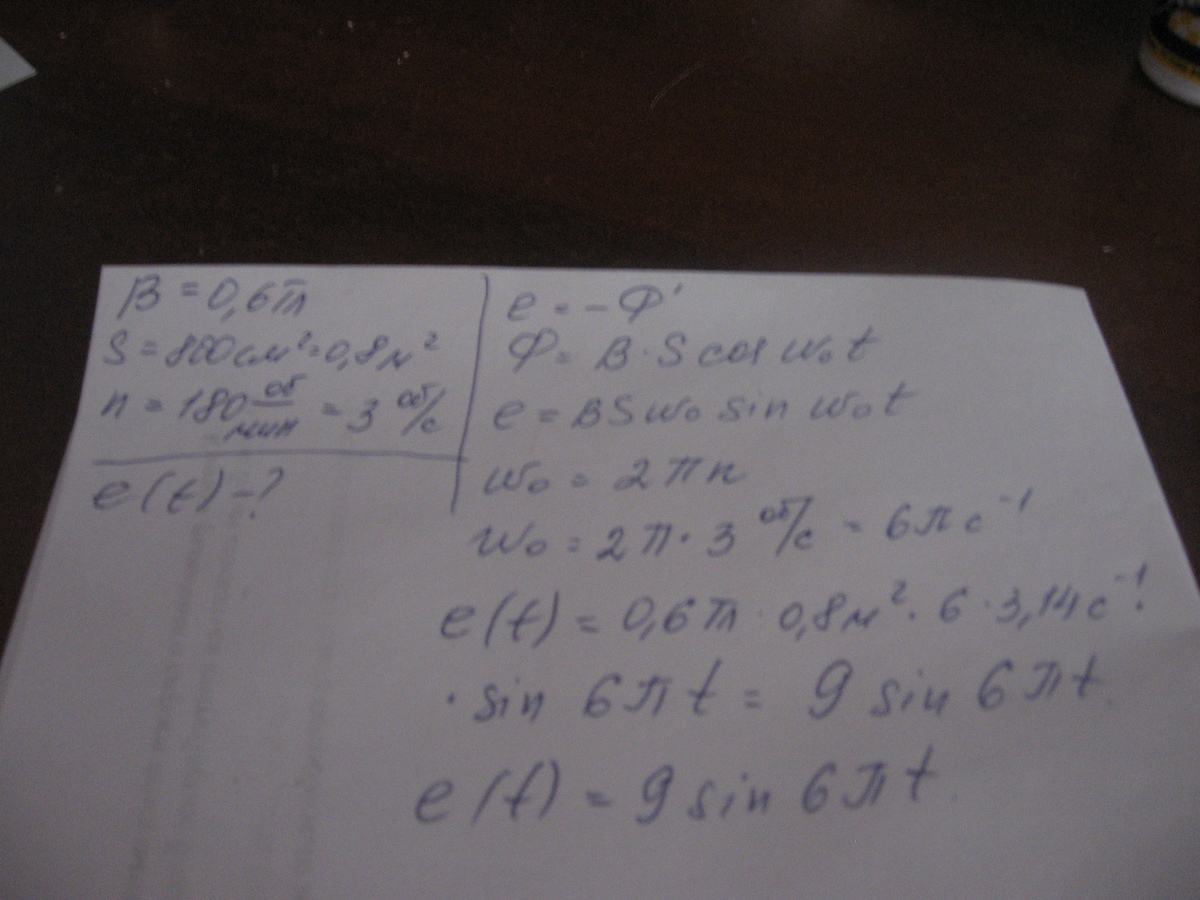 B = 0,6Тл
S = 800см² = 0,8м²
n = 180 об/мин = 3 об/с
e(t) - ?
e = -Ф'
Ф = B · S cos ω₀t
e = BSω₀ sin ω₀t
ω₀ = 2πn
ω₀ = 2π · 3 об/с = 6π с⁻¹
e(t) = 0,6Тл · 0,8м² · 6 · 3,14 с⁻¹ ·
· sin 6πt = 9 sin 6πt
e(t) = 9 sin 6πt